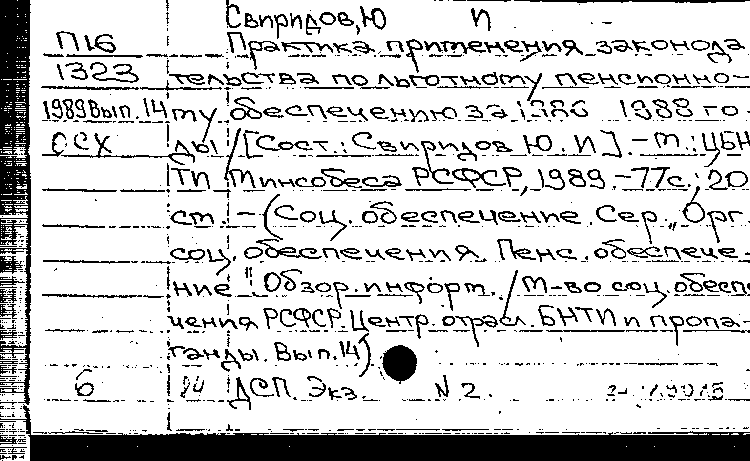 Свиридов, Ю И
П16 Практика применения законода
1323 тельства по льготному пенсионно-
1989 Вып. 14 му обеспечению за 1986 1988 го-
ОСХ ды / [Сост.: Свиридов Ю. И]. - М.: ЦБН
ТИ Минсобеса РСФСР, 1989. - 77с.; 20
см. - (Соц. обеспечение. Сер. „Орг.
соц. обеспечения. Пенс. обеспече-
ние" Обзор. информ. / М-во соц. обеспе
чения РСФСР. Центр. отрасл. БНТИ и пропа-
ганды. Вып. 14)
6 84 ДСП. Экз. N 2.